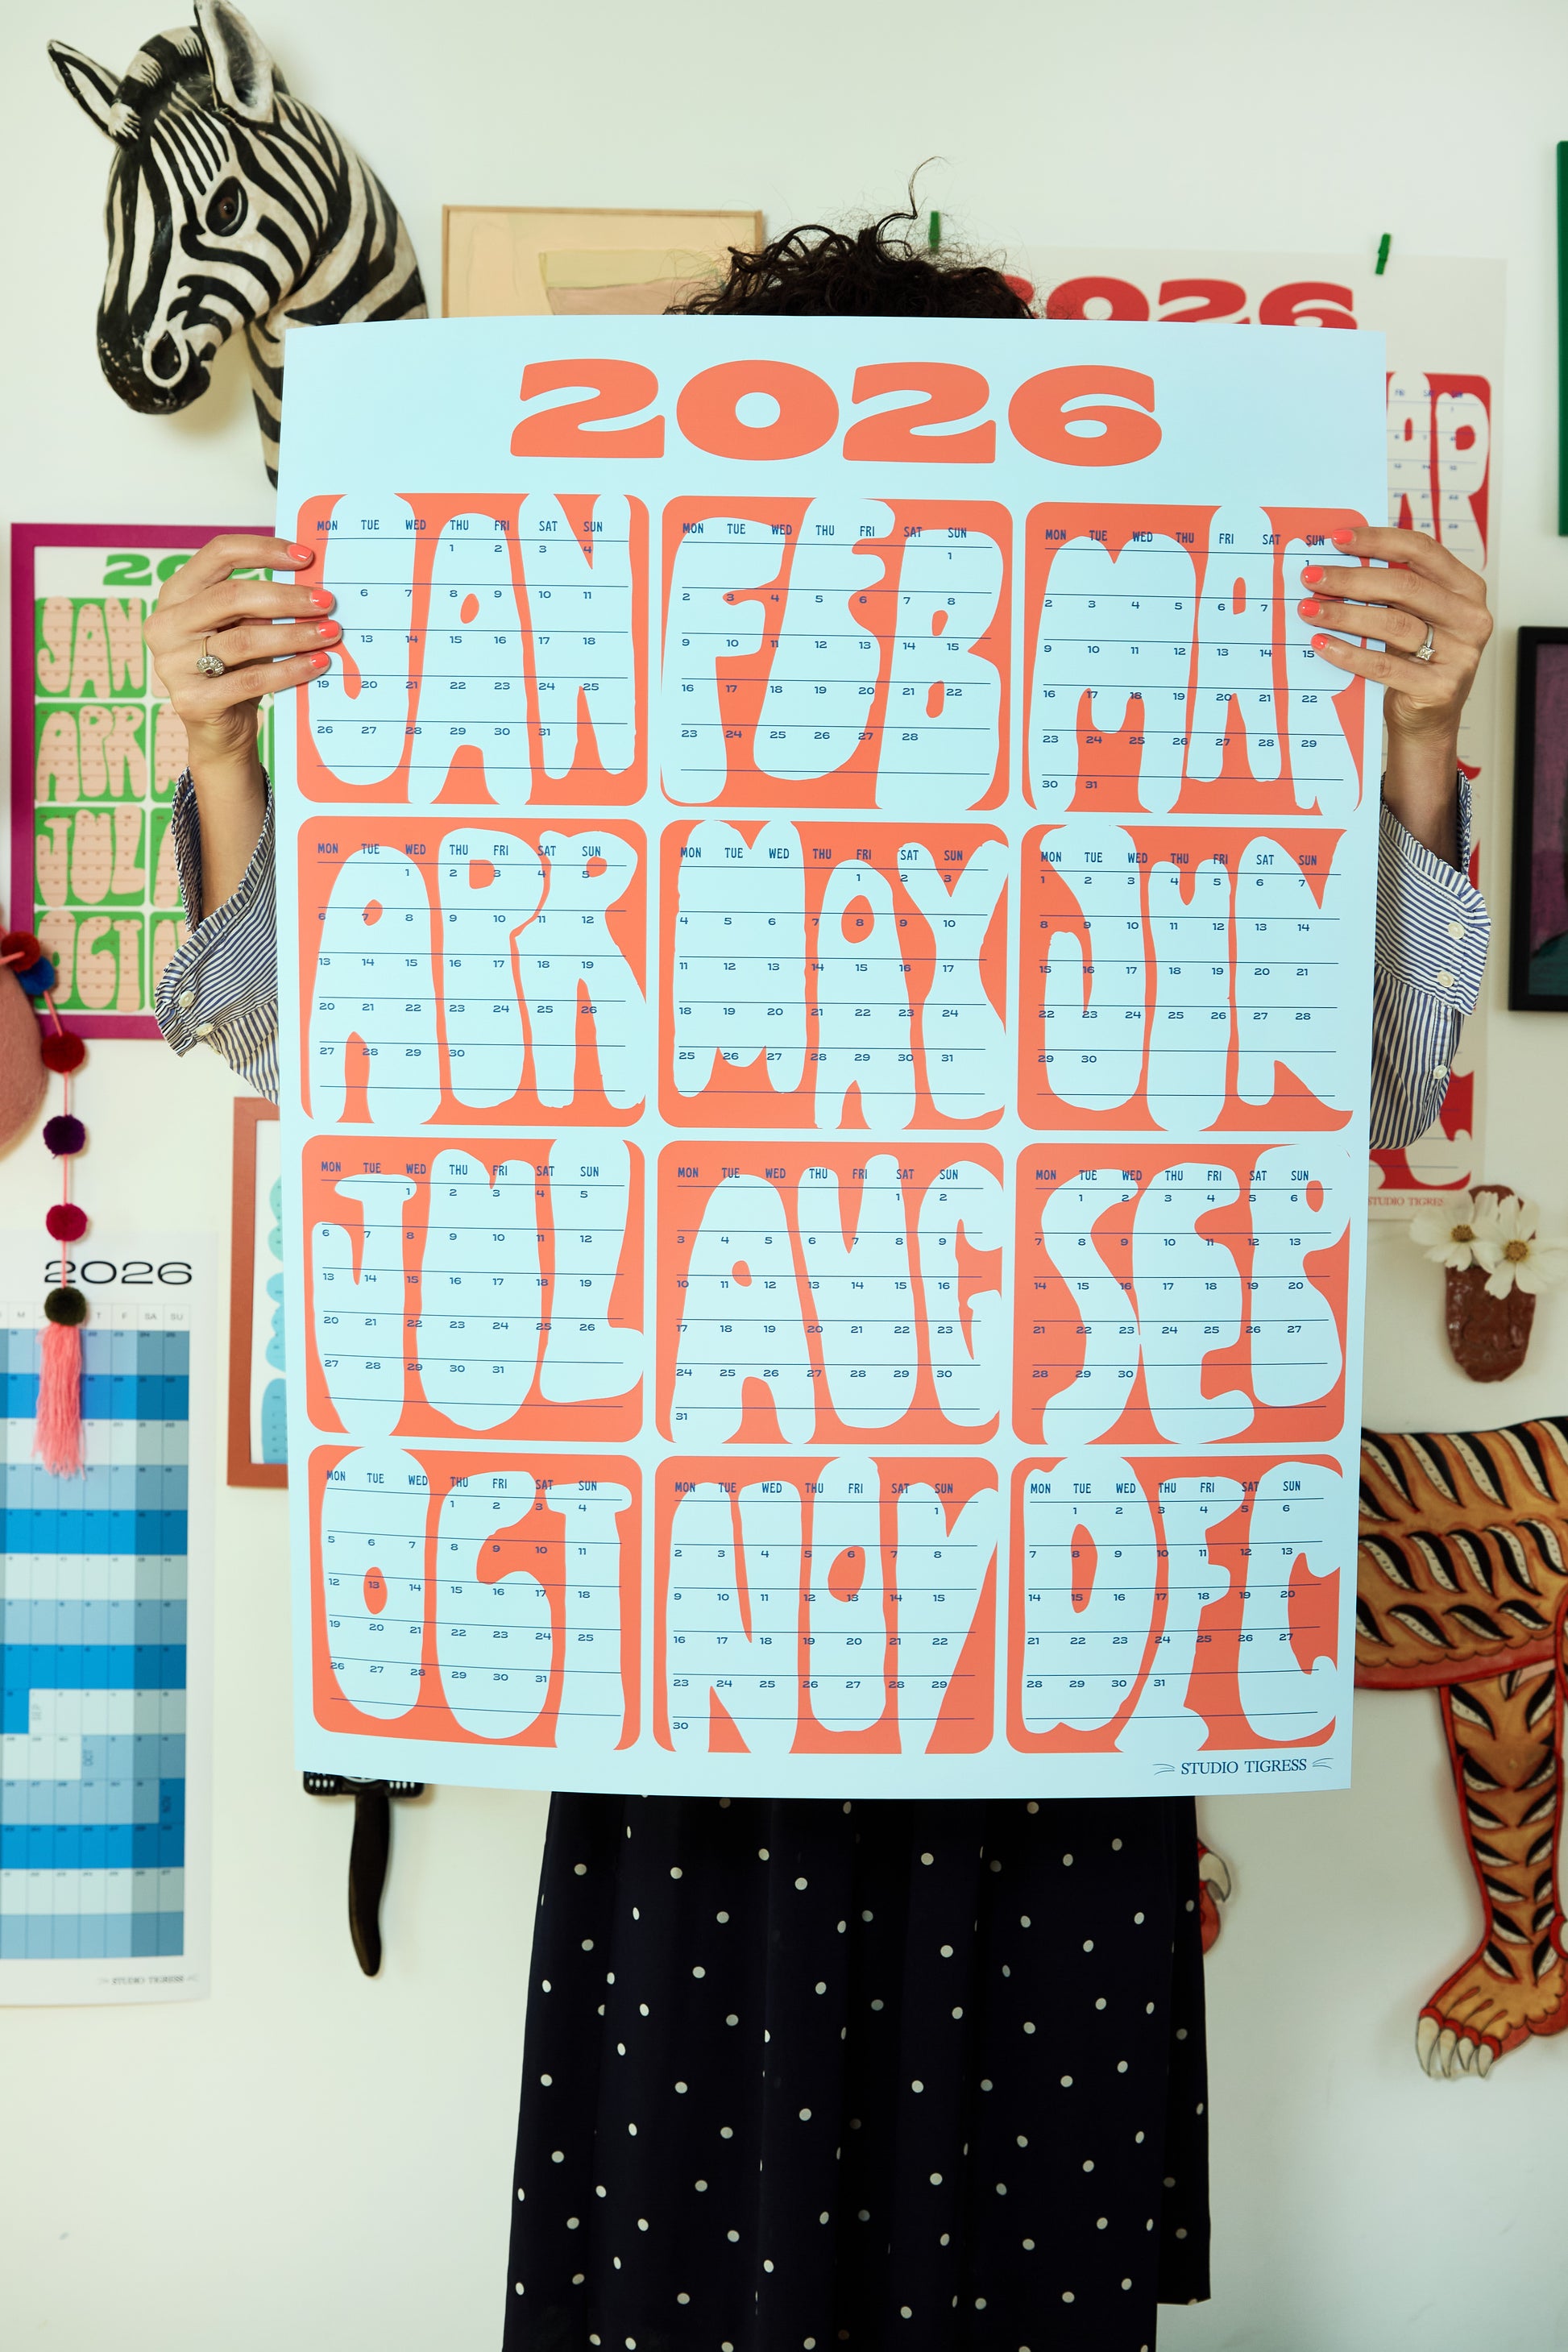 2026
JAN
MON TUE WED THU FRI SAT SUN
1 2 3 4
6 7 8 9 10 11
13 14 15 16 17 18
19 20 21 22 23 24 25
26 27 28 29 30 31
FEB
MON TUE WED THU FRI SAT SUN
1
2 3 4 5 6 7 8
9 10 11 12 13 14 15
16 17 18 19 20 21 22
23 24 25 26 27 28
MAR
MON TUE WED THU FRI SAT SUN
1
2 3 4 5 6 7
9 10 11 12 13 14 15
16 17 18 19 20 21 22
23 24 25 26 27 28 29
30 31
APR
MON TUE WED THU FRI SAT SUN
1 2 3 4 5
6 7 8 9 10 11 12
13 14 15 16 17 18 19
20 21 22 23 24 25 26
27 28 29 30
MAY
MON TUE WED THU FRI SAT SUN
1 2 3
4 5 6 7 8 9 10
11 12 13 14 15 16 17
18 19 20 21 22 23 24
25 26 27 28 29 30 31
JUN
MON TUE WED THU FRI SAT SUN
1 2 3 4 5 6 7
8 9 10 11 12 13 14
15 16 17 18 19 20 21
22 23 24 25 26 27 28
29 30
JUL
MON TUE WED THU FRI SAT SUN
1 2 3 4 5
6 7 8 9 10 11 12
13 14 15 16 17 18 19
20 21 22 23 24 25 26
27 28 29 30 31
AUG
MON TUE WED THU FRI SAT SUN
1 2
3 4 5 6 7 8 9
10 11 12 13 14 15 16
17 18 19 20 21 22 23
24 25 26 27 28 29 30
31
SEP
MON TUE WED THU FRI SAT SUN
1 2 3 4 5 6
7 8 9 10 11 12 13
14 15 16 17 18 19 20
21 22 23 24 25 26 27
28 29 30
OCT
MON TUE WED THU FRI SAT SUN
1 2 3 4
5 6 7 8 9 10 11
12 13 14 15 16 17 18
19 20 21 22 23 24 25
26 27 28 29 30 31
NOV
MON TUE WED THU FRI SAT SUN
1
2 3 4 5 6 7 8
9 10 11 12 13 14 15
16 17 18 19 20 21 22
23 24 25 26 27 28 29
30
DEC
MON TUE WED THU FRI SAT SUN
1 2 3 4 5 6
7 8 9 10 11 12 13
14 15 16 17 18 19 20
21 22 23 24 25 26 27
28 29 30 31
STUDIO TIGRESS
2026
JAN
APR
JUL
OCT
2026
M T F SA SU
STUDIO TIGRESS
2026
STUDIO TIGRESS